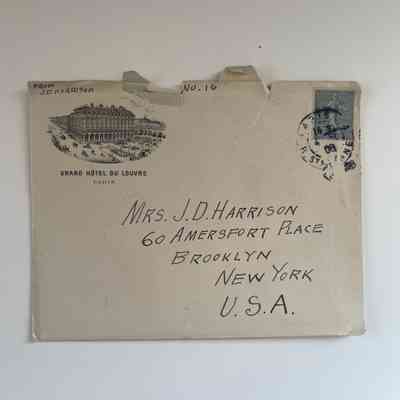 FROM
J.D. HARRISON
NO. 16
GRAND HÔTEL DU LOUVRE
PARIS
MRS. J.D. HARRISON
60 AMERSFORT PLACE
BROOKLYN
NEW YORK
U.S.A.